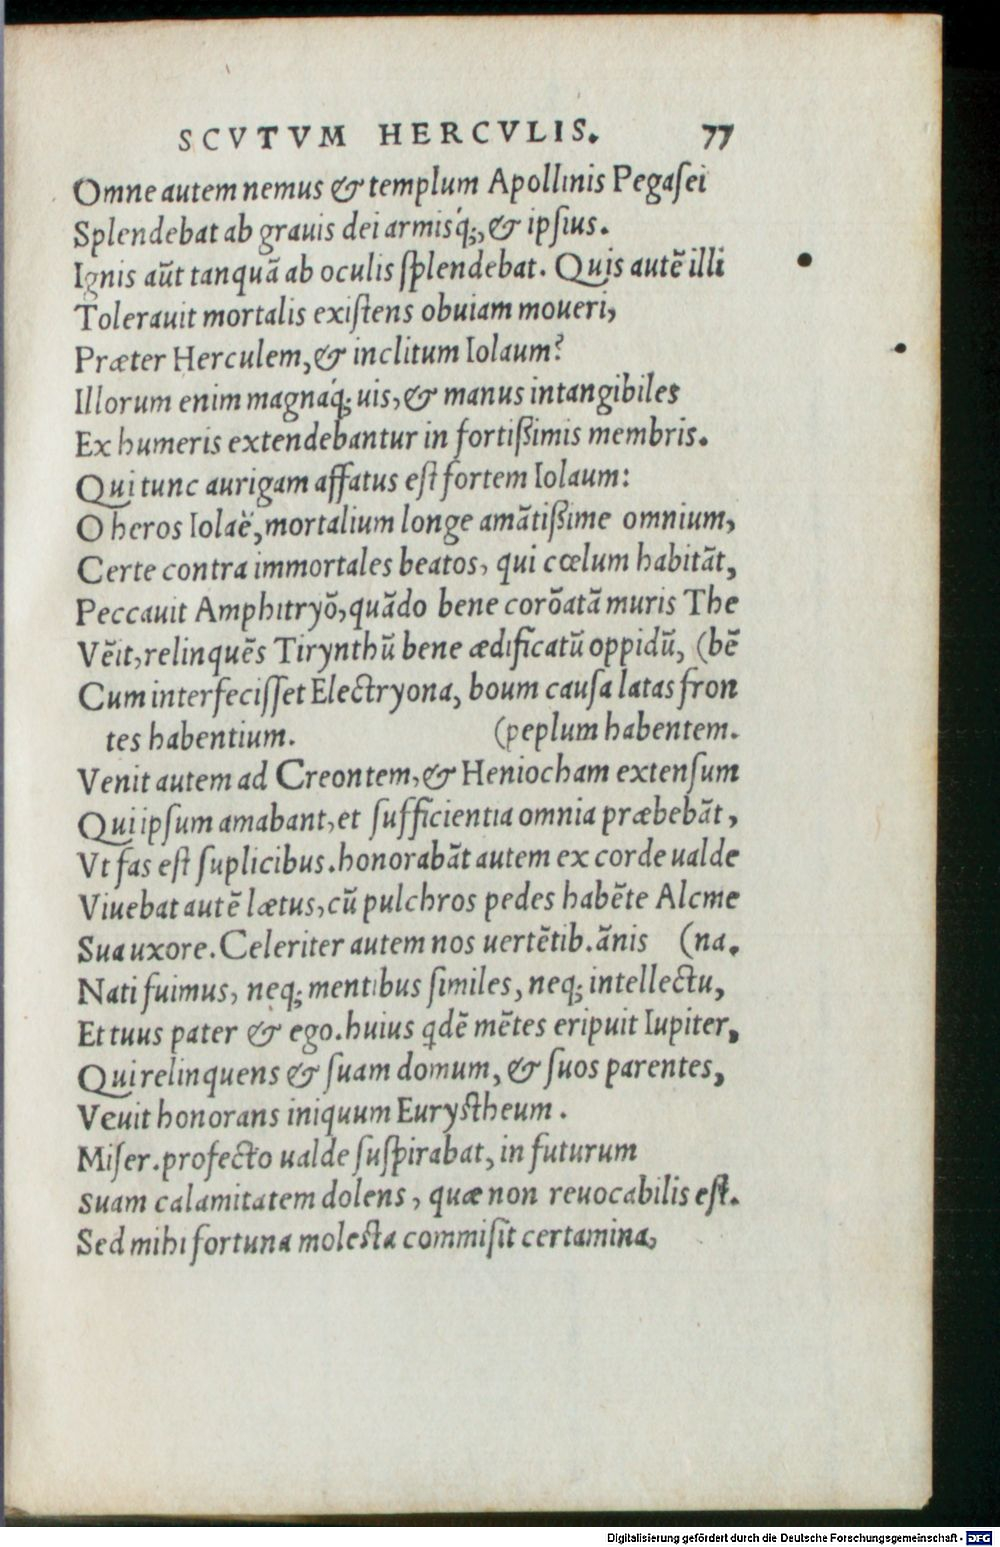 SCVTVM HERCVLIS. 77
Omne autem nemus & templum Apollinis Pegaſei
Splendebat ab grauis dei armisq́;, & ipſius.
Ignis aũt tanquã ab oculis ſplendebat. Quis autẽ illi
Tolerauit mortalis exiſtens obuiam moueri,
Præter Herculem, & inclitum Iolaum?
Illorum enim magnaq́; uis, & manus intangibiles
Ex humeris extendebantur in fortißimis membris.
Qui tunc aurigam affatus eſt fortem Iolaum:
O heros Iolaë, mortalium longe amãtißime omnium,
Certe contra immortales beatos, qui cœlum habitãt,
Peccauit Amphitryõ, quãdo bene corõatã muris The
Vẽit, relinquẽs Tirynthũ bene ædificatũ oppidũ, (bẽ
Cum interfeciſſet Electryona, boum cauſa latas fron
tes habentium. (peplum habentem.
Venit autem ad Creontem, & Heniocham extenſum
Qui ipſum amabant, et ſufficientia omnia præbebãt,
Vt fas eſt ſuplicibus. honorabãt autem ex corde ualde
Viuebat autẽ lætus, cũ pulchros pedes habẽte Alcme
Sua uxore. Celeriter autem nos uertẽtib. ãnis (na.
Nati fuimus, neq; mentibus ſimiles, neq; intellectu,
Et tuus pater & ego. huius qdẽ mẽtes eripuit Iupiter,
Qui relinquens & ſuam domum, & ſuos parentes,
Veuit honorans iniquum Euryſtheum.
Miſer. profecto ualde ſuſpirabat, in futurum
Suam calamitatem dolens, quæ non reuocabilis eſt.
Sed mihi fortuna moleſta commiſit certamina,
Digitalisierung gefördert durch die Deutsche Forschungsgemeinschaft - DFG